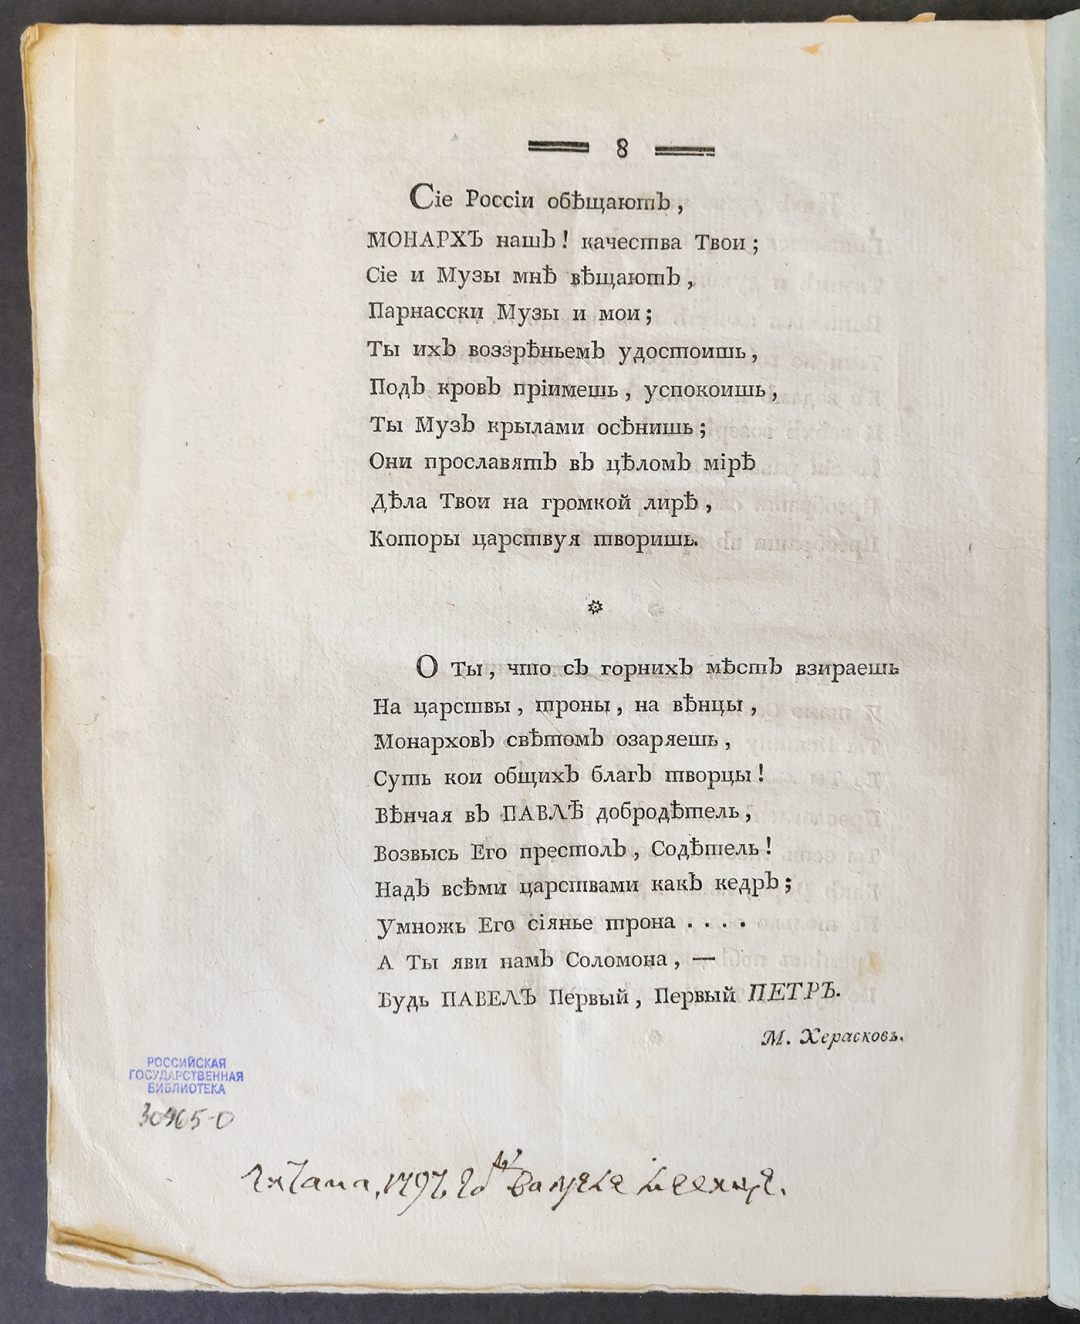 8
Сіе Россіи обѣщаютъ,
МОНАРХЪ нашъ! качества Твои;
Сіе и Музы мнѣ вѣщаютъ,
Парнасски Музы и мои;
Ты ихъ воззрѣньемъ удостоишь,
Подъ кровъ пріимешь, успокоишь,
Ты Музъ крылами осѣнишь;
Они прославятъ въ цѣломъ мірѣ
Дѣла Твои на громкой лирѣ,
Которы царствуя творишь.
О Ты, что съ горнихъ мѣстъ взираешь
На царствы, троны, на вѣнцы,
Монарховъ свѣтомъ озаряешь,
Суть кои общихъ благъ творцы!
Вѣнчая въ ПАВЛѢ добродѣтель,
Возвысь Его престолъ, Содѣтель!
Надъ всѣми царствами какъ кедръ;
Умножь Его сіянье трона . . . .
А Ты яви намъ Соломона, —
Будь ПАВЕЛЪ Первый, Первый ПЕТРЪ.
М. Херасковъ.
РОССИЙСКАЯ
ГОСУДАРСТВЕННАЯ
БИБЛИОТЕКА
30965-0
1797.